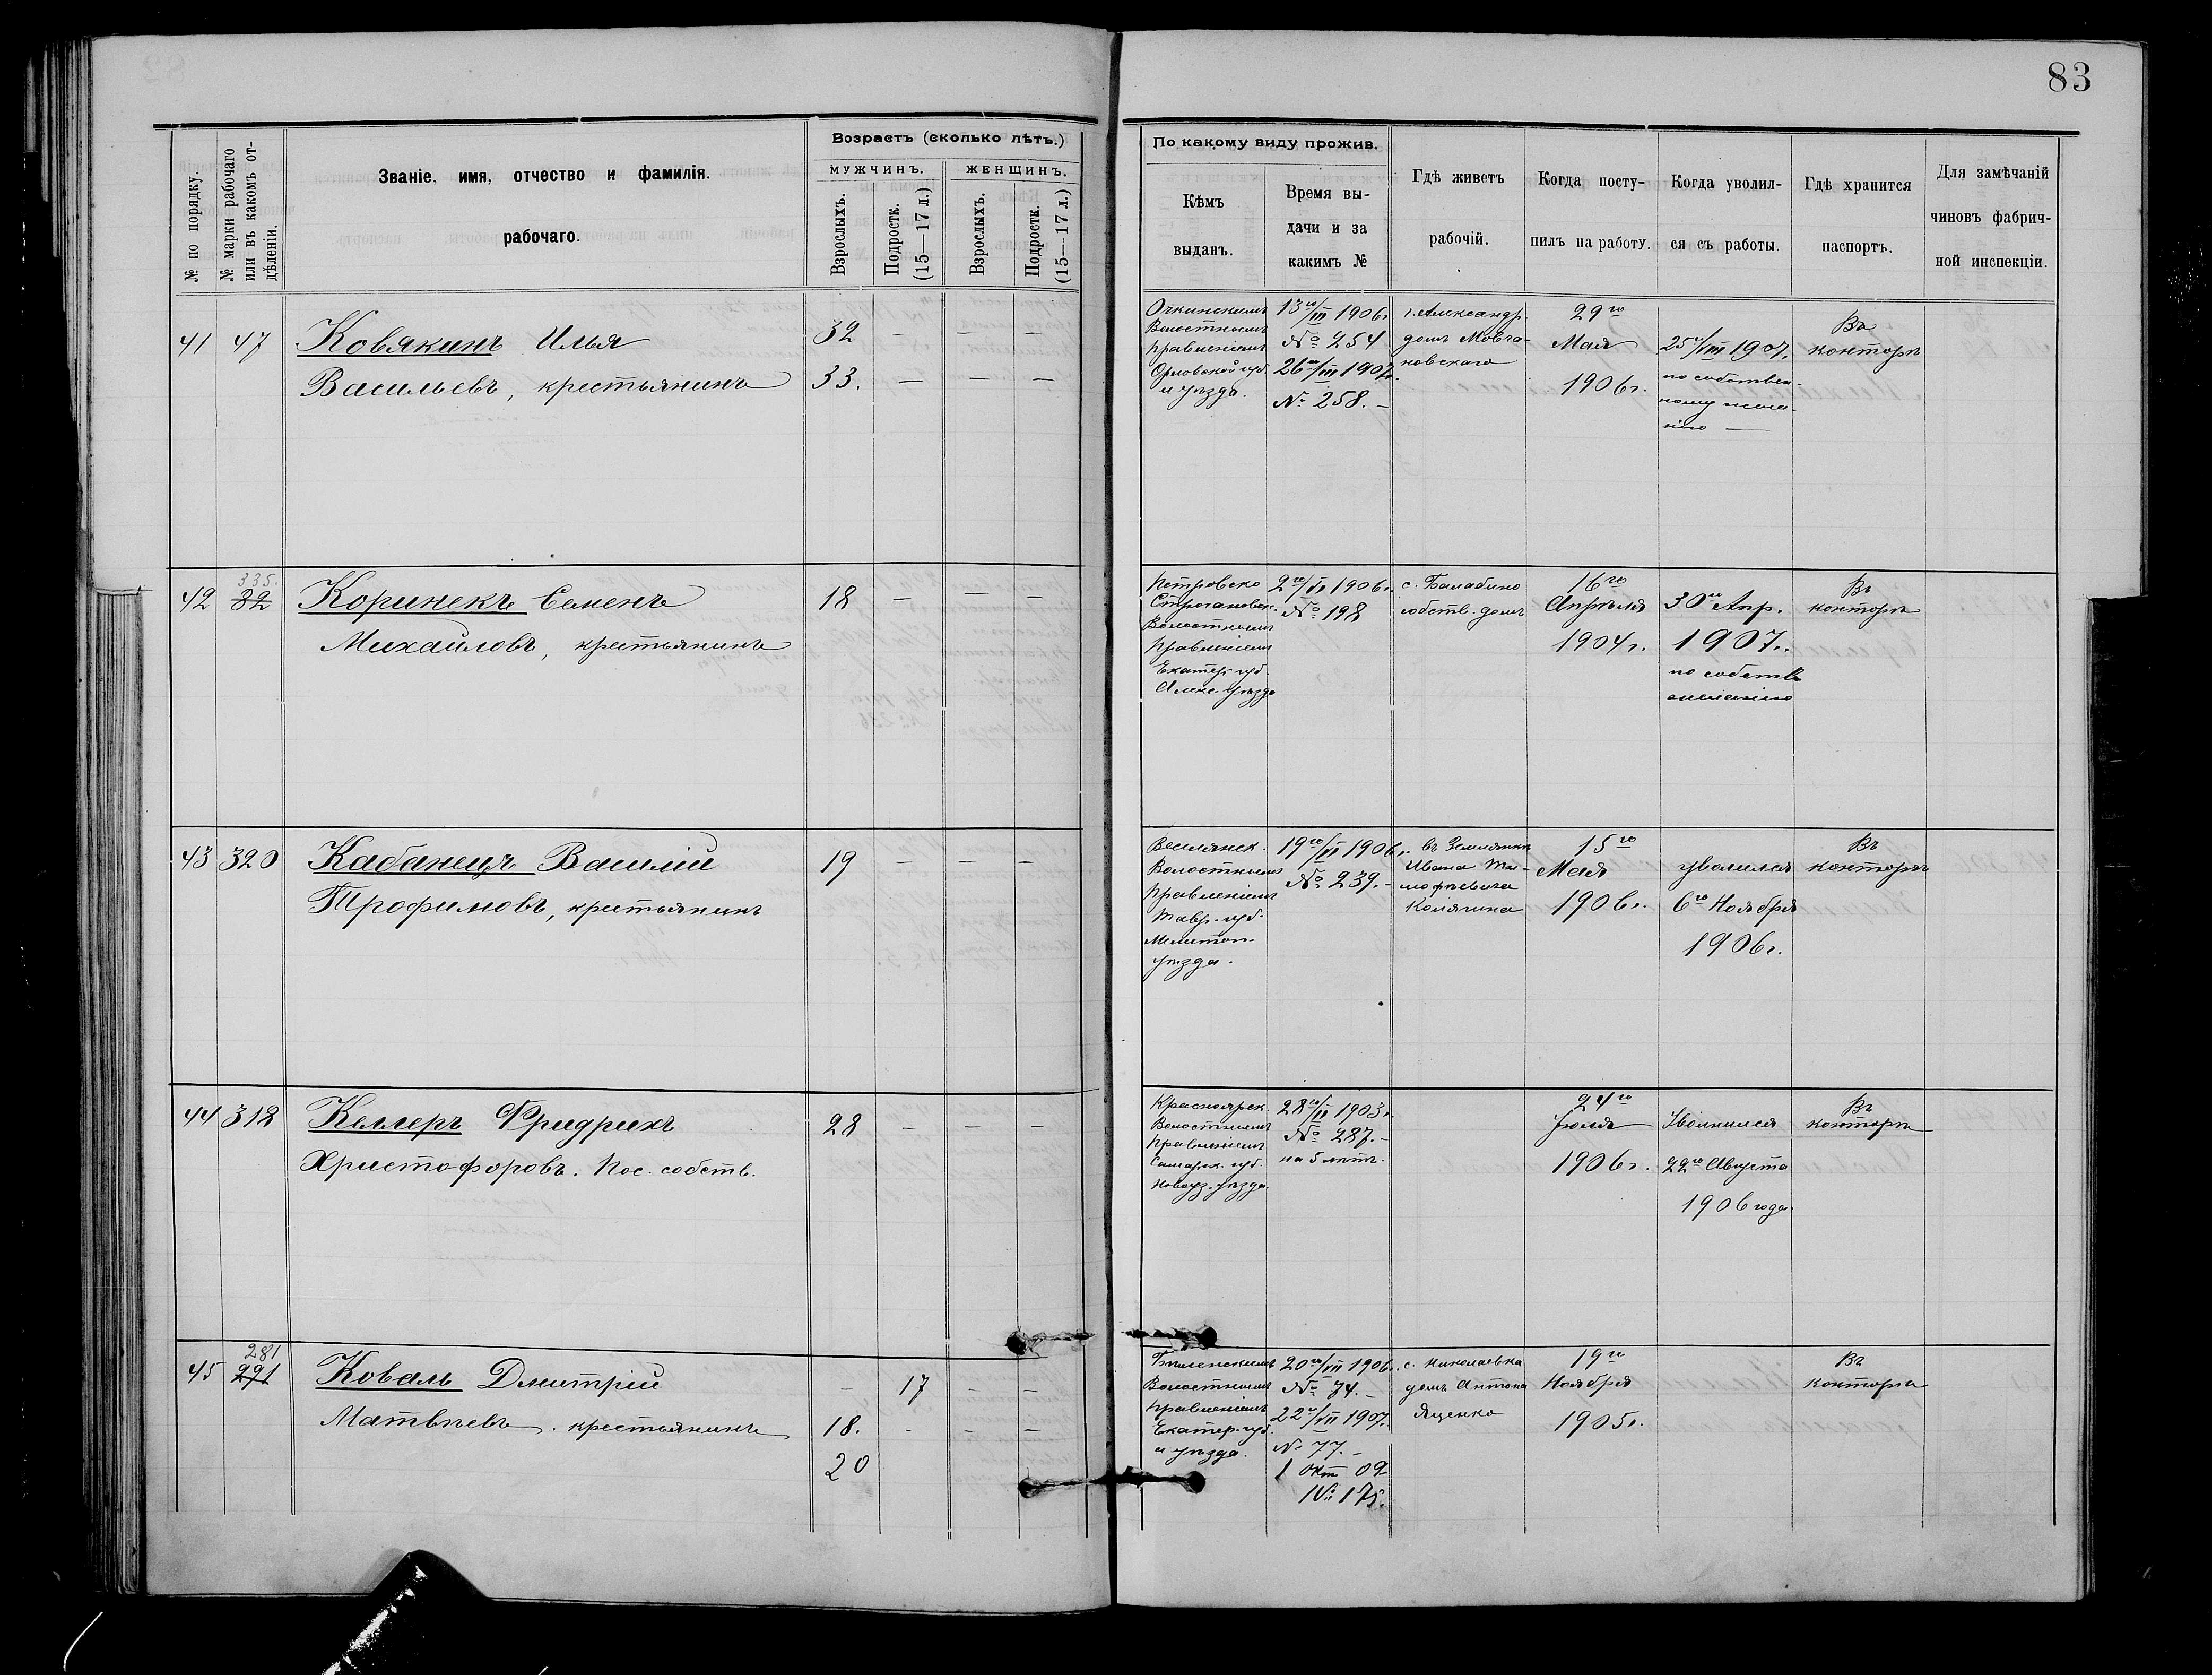 83
№ по порядку.
№ марки рабочаго
или въ какомъ от-
дѣленіи.
Званіе, имя, отчество и фамилія.
рабочаго.
Возрастъ (сколько лѣтъ.)
МУЖЧИНЪ.
ЖЕНЩИНЪ.
Взрослыхъ.
Подростк.
(15—17 л.)
Взрослыхъ.
Подростк.
(15—17 л.)
По какому виду прожив.
Кѣмъ
выданъ.
Время вы-
дачи и за
какимъ №
Гдѣ живетъ
рабочій.
Когда посту-
пилъ на работу.
Когда уволил-
ся съ работы.
Гдѣ хранится
паспортъ.
Для замѣчаній
чиновъ фабрич-
ной инспекціи.
41 47 Ковякинъ Илья
Васильевъ, крестьянинъ
32 — — —
33. — — —
Волостнымъ
правленіемъ
Орловской губ.
и уѣзда.
13го/III 1906г.
№ 254
26го/III 1907г.
№ 258. —
г. Александр.
домъ Мовча-
новскаго
29го
Мая
1906г.
25го/VIII 1907г.
по собствен-
ному жела-
нію —
Въ
конторѣ
42 335.
82
Коринекъ Семенъ
Михайловъ, крестьянинъ
18 — — —
Петровско
Строгановск.
Волостнымъ
правленіемъ
Екатер. губ.
Алекс. уѣзда
1906г.
№ 198
с. Балабино
собств. домъ
16го
Апрѣля
1904г.
30го Апр.
1907г.
по собств.
желанію
Въ
конторѣ
43 320 Кабанецъ Василій
Трофимовъ, крестьянинъ
19 — — —
Веселянск.
Волостнымъ
правленіемъ
Тавр. губ.
Мелитоп.
уѣзда.
1906г.
№ 239. —
въ Землянкѣ
Ивана Ти-
мофѣевича
Калягина
15го
Мая
1906г.
уволился
6го Ноября
1906г.
Въ
конторѣ
44 318 Келлеръ Фридрихъ
Христофоровъ. Пос. собств.
28 — — —
Красноярск.
Волостнымъ
правленіемъ
Самарк. губ.
Новоуз. уѣзда.
1903г.
№ 287. —
на 5 лѣтъ.
24го
Іюля
1906г.
Уволился
22го Августа
1906 года.
Въ
конторѣ
45 281
291
Коваль Дмитрій
Матвѣевъ. крестьянинъ
— 17 — —
18. — — —
20
Волостнымъ
правленіемъ
Екатер. губ.
и уѣзда.
20го/VII 1906г.
№ 74. —
22го/VII 1907г.
№ 77. —
1 окт 09
№ 175.
с. Николаевка
домъ Антона
Яценко
19го
Ноября
1905г.
Въ
конторѣ